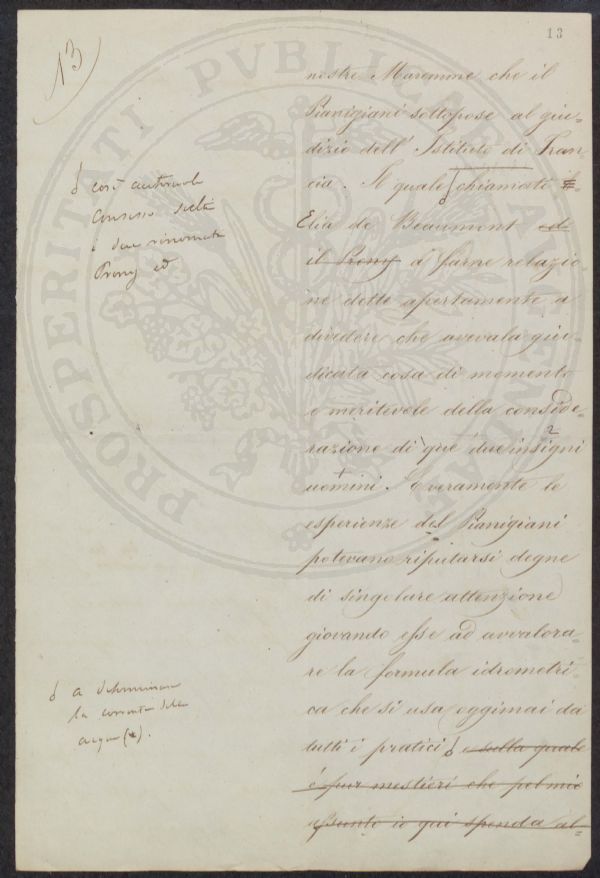 13
13
nostre Maremme che il
Pianigiani sottopose al giu=
dizio dell' Istituto di Fran=
cia. Il quale chiamato
Elia de Beaumont ed
il Prony a farne relazio=
ne dette apertamente a
divedere che avevala giu=
dicata cosa di momento
e meritevole della conside=
razione di que' due insigni
2
uomini. E veramente le
esperienze del Pianigiani
potevano riputarsi degne
di singolare attenzione
giovando esse ad avvalora=
re la formula idrometri=
ca che si usa oggimai da
tutti i pratici e sulla quale
è pur mestieri che pel mio
assunto io qui spenda al=
così autorevole
consesso scelti
i due rinomati
Prony ed
a determinare
la corrente delle
acque (*).
PROSPERITATI PVBLICAE AVGENDAE